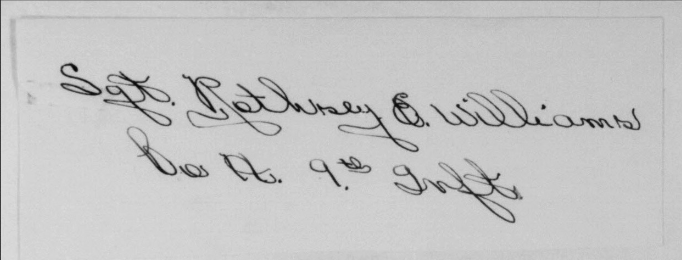 Sgt. Rothwsey E. Williams
Co A. 9.th Inft.